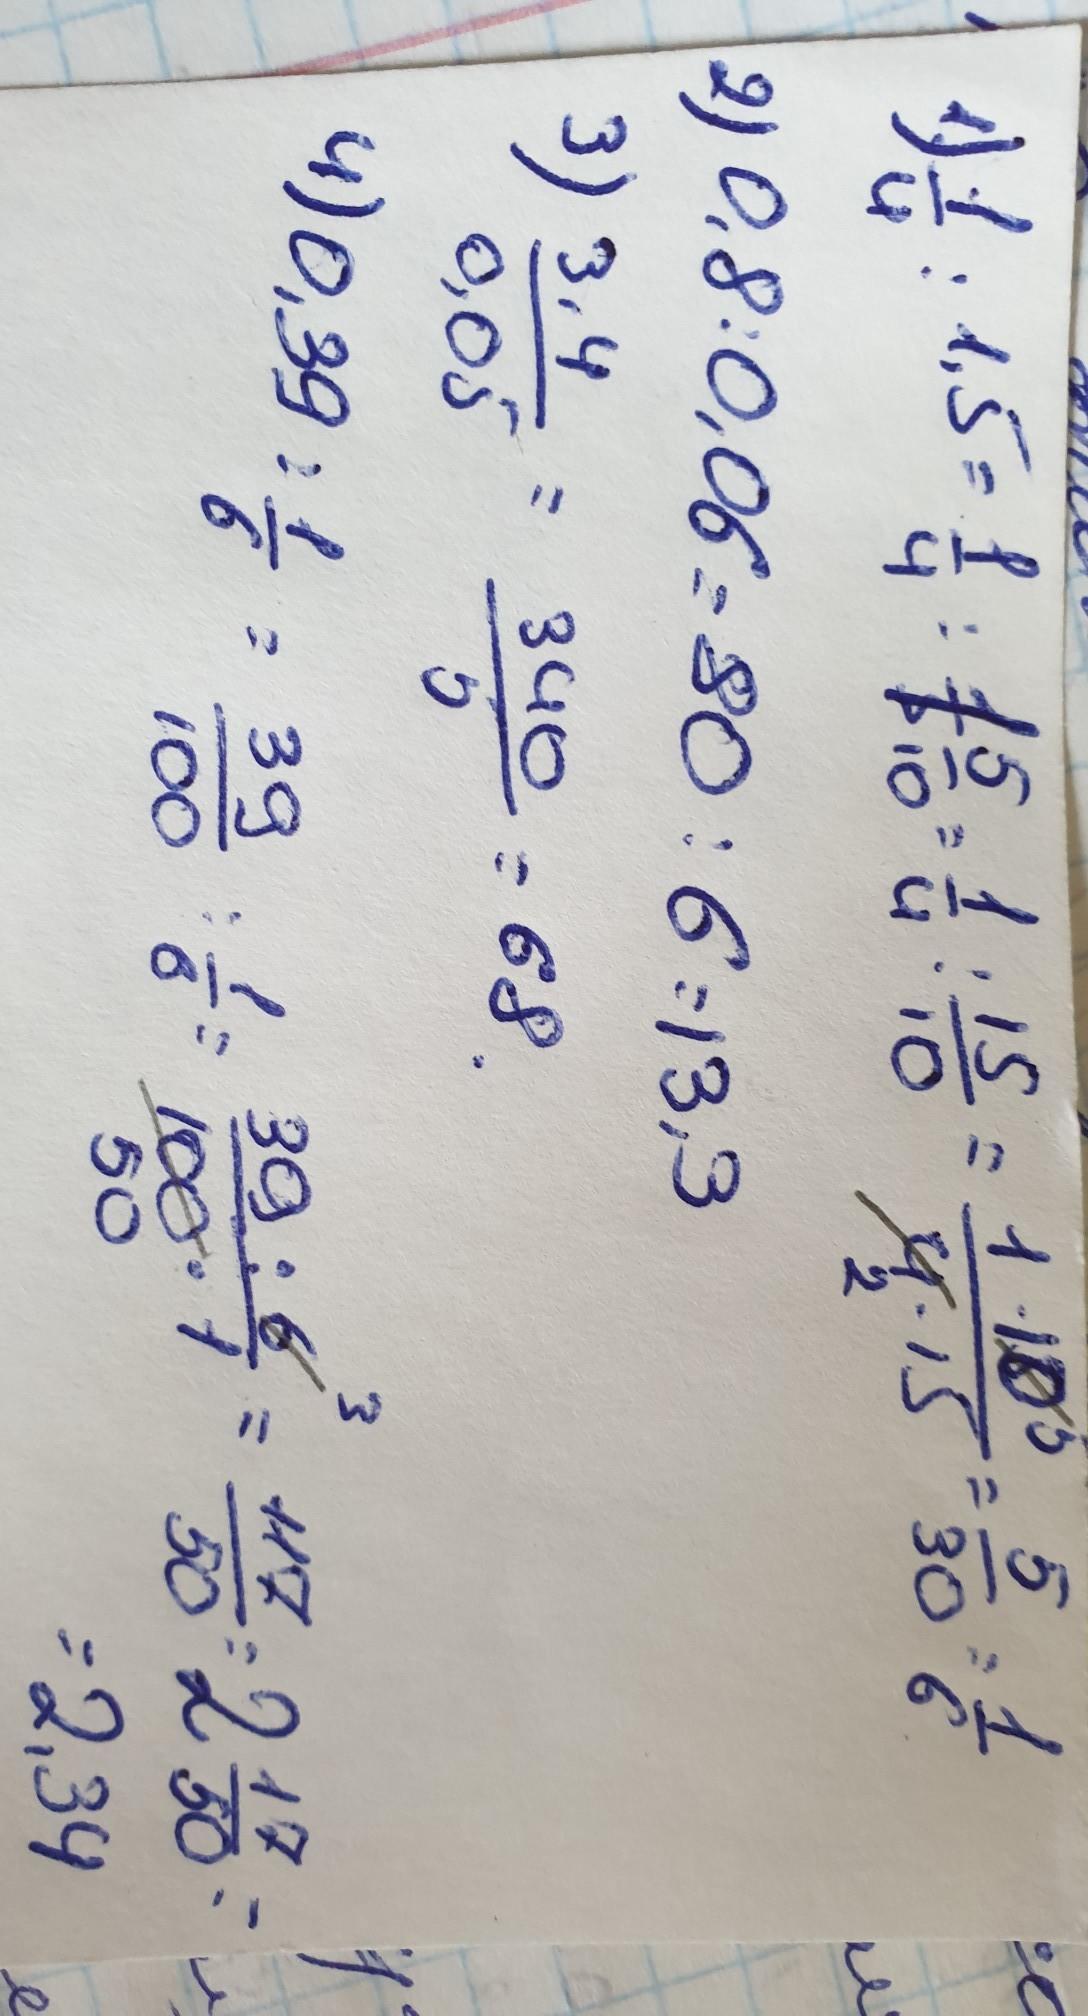 1) 1/4 : 1,5 = 1/4 : 15/10 = 1/4 : 15/10 = 1·10 5/4 2·15 = 5/30 = 1/6
2) 0,8:0,06=80:6=13,3
3) 3,4/0,05 = 340/5 = 68.
4) 0,39 : 1/6 = 39/100 : 1/6 = 39·6 3/100 50·1 = 117/50 = 2 17/50 =
= 2,34